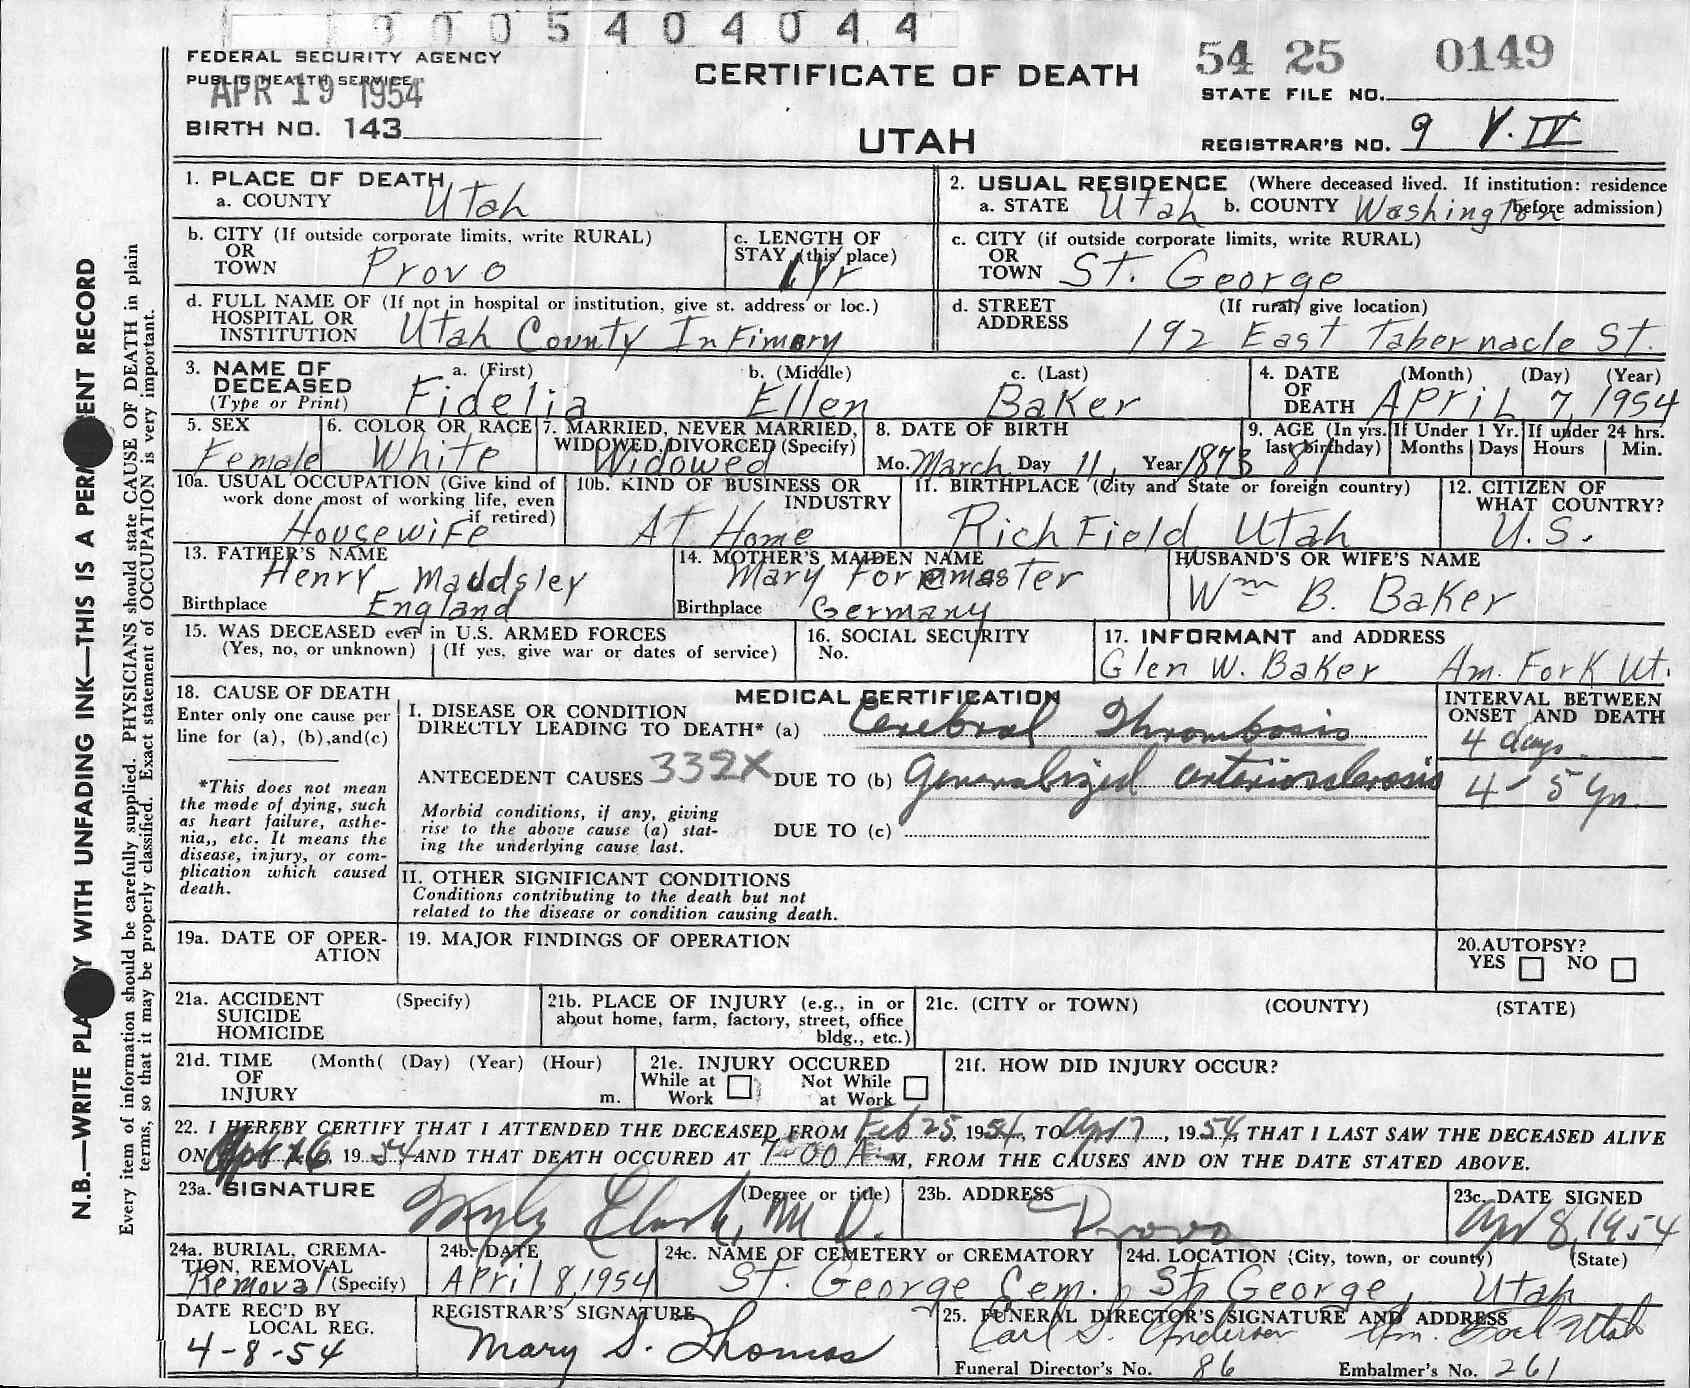 3005404044
FEDERAL SECURITY AGENCY
PUBLIC HEALTH SERVICE
APR 19 1954
BIRTH NO. 143
CERTIFICATE OF DEATH
UTAH
54 25 0149
STATE FILE NO.
REGISTRAR'S NO. 9 V. IV
N.B.—WRITE PLA Y WITH UNFADING INK—THIS IS A PERM ENT RECORD
Every item of information should be carefully supplied. PHYSICIANS should state CAUSE OF DEATH in plain
terms, so that it may be properly classified. Exact statement of OCCUPATION is very important.
1. PLACE OF DEATH
a. COUNTY Utah
2. USUAL RESIDENCE (Where deceased lived. If institution: residence
a. STATE Utah b. COUNTY Washington before admission)
b. CITY (If outside corporate limits, write RURAL)
OR
TOWN Provo
c. LENGTH OF
STAY (this place)
1 yr
c. CITY (if outside corporate limits, write RURAL)
OR
TOWN St. George
d. FULL NAME OF (If not in hospital or institution, give st. address or loc.)
HOSPITAL OR
INSTITUTION Utah County Infimary
d. STREET (If rural, give location)
ADDRESS
192 East Tabernacle St.
3. NAME OF a. (First) b. (Middle) c. (Last)
DECEASED
(Type or Print) Fidelia Ellen Baker
4. DATE (Month) (Day) (Year)
OF
DEATH April 7, 1954
5. SEX
Female
6. COLOR OR RACE
White
7. MARRIED, NEVER MARRIED,
WIDOWED, DIVORCED (Specify)
Widowed
8. DATE OF BIRTH
Mo. March Day 11, Year 1873
9. AGE (In yrs.
last birthday)
81
If Under 1 Yr.
Months Days
If under 24 hrs.
Hours Min.
10a. USUAL OCCUPATION (Give kind of
work done most of working life, even
if retired)
Housewife
10b. KIND OF BUSINESS OR
INDUSTRY
At Home
11. BIRTHPLACE (City and State or foreign country)
Richfield Utah
12. CITIZEN OF
WHAT COUNTRY?
U.S.
13. FATHER'S NAME
Henry Maudsley
Birthplace England
14. MOTHER'S MAIDEN NAME
Mary Foremaster
Birthplace Germany
HUSBAND'S OR WIFE'S NAME
Wm B. Baker
15. WAS DECEASED ever in U.S. ARMED FORCES
(Yes, no, or unknown) (If yes, give war or dates of service)
16. SOCIAL SECURITY
No.
17. INFORMANT and ADDRESS
Glen W. Baker Am. Fork Ut.
18. CAUSE OF DEATH
Enter only one cause per
line for (a), (b),and(c)
*This does not mean
the mode of dying, such
as heart failure, asthe-
nia,, etc. It means the
disease, injury, or com-
plication which caused
death.
MEDICAL CERTIFICATION
I. DISEASE OR CONDITION
DIRECTLY LEADING TO DEATH* (a) Cerebral Thrombosis
ANTECEDENT CAUSES 332X DUE TO (b) Generalized arteriosclerosis
Morbid conditions, if any, giving
rise to the above cause (a) stat-
ing the underlying cause last.
DUE TO (c)
INTERVAL BETWEEN
ONSET AND DEATH
4 days
4-5 yr.
II. OTHER SIGNIFICANT CONDITIONS
Conditions contributing to the death but not
related to the disease or condition causing death.
19a. DATE OF OPER-
ATION
19. MAJOR FINDINGS OF OPERATION
20.AUTOPSY?
YES NO
21a. ACCIDENT (Specify)
SUICIDE
HOMICIDE
21b. PLACE OF INJURY (e.g., in or
about home, farm, factory, street, office
bldg., etc.)
21c. (CITY or TOWN) (COUNTY) (STATE)
21d. TIME (Month( (Day) (Year) (Hour)
OF
INJURY m.
21e. INJURY OCCURED
While at Not While
Work at Work
21f. HOW DID INJURY OCCUR?
22. I HEREBY CERTIFY THAT I ATTENDED THE DECEASED FROM Feb 25, 1954, TO Apr 7, 1954, THAT I LAST SAW THE DECEASED ALIVE
ON 6, 1954, AND THAT DEATH OCCURED AT 7:00 A.M, FROM THE CAUSES AND ON THE DATE STATED ABOVE.
23a. SIGNATURE (Degree or title)
Clark, M D.
23b. ADDRESS
Provo
23c. DATE SIGNED
Apr 8, 1954
24a. BURIAL, CREMA-
TION, REMOVAL
Removal (Specify)
24b. DATE
April 8, 1954
24c. NAME OF CEMETERY or CREMATORY
St. George Cem.
24d. LOCATION (City, town, or county) (State)
St. George, Utah
DATE REC'D BY
LOCAL REG.
4-8-54
REGISTRAR'S SIGNATURE
Mary S. Thomas
25. FUNERAL DIRECTOR'S SIGNATURE AND ADDRESS
Carl S. Anderson Am. Fork Utah
Funeral Director's No. 86 Embalmer's No. 261